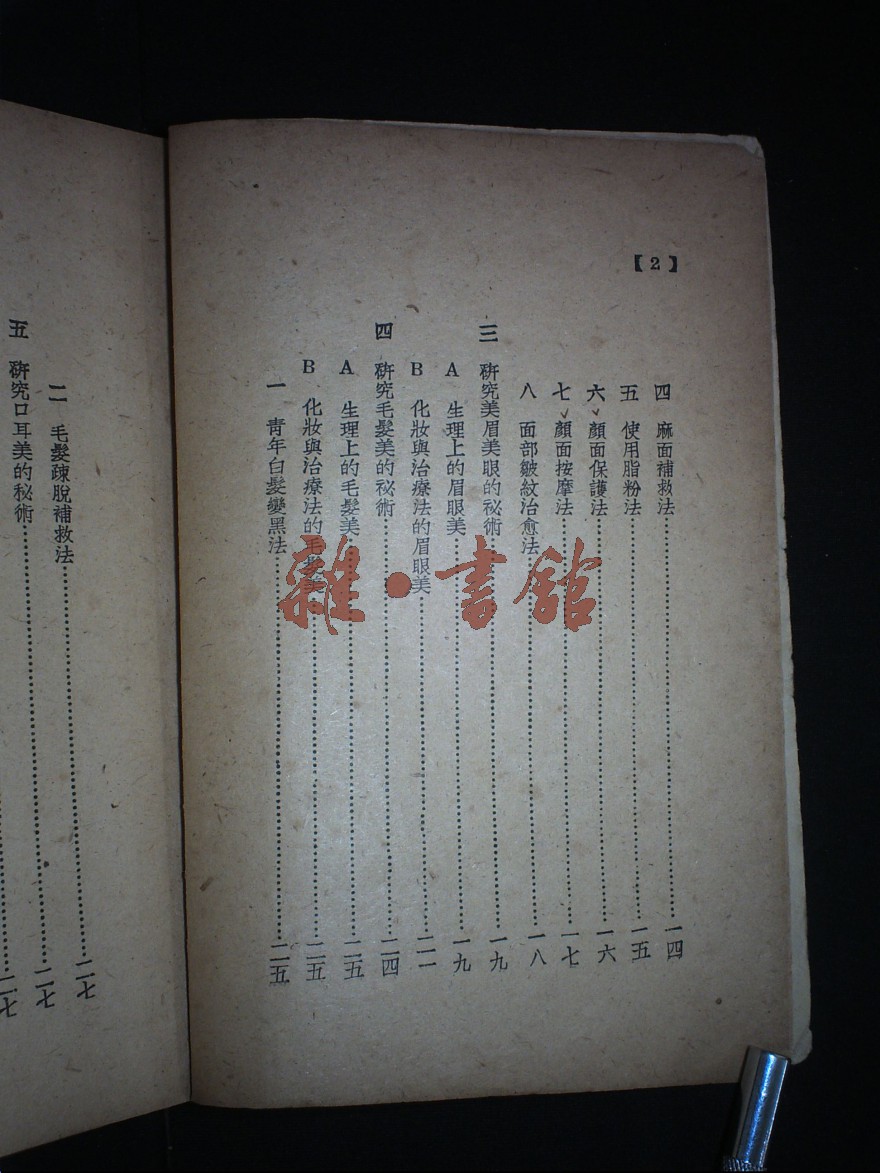 【2】
四 麻面補救法……一四
五 使用脂粉法……一五
六 顏面保護法……一六
七 顏面按摩法……一七
八 面部皺紋治愈法……一八
三 研究美眉美眼的秘術……一九
A 生理上的眉眼美……一九
B 化妝與治療法的眉眼美……二一
四 研究毛髮美的祕術……二四
A 生理上的毛髮美……二五
B 化妝與治療法的毛髮美……二五
一 青年白髮變黑法……二五
二 毛髮疎脫補救法……二七
五 研究口耳美的秘術……二七
二七
雜·書館